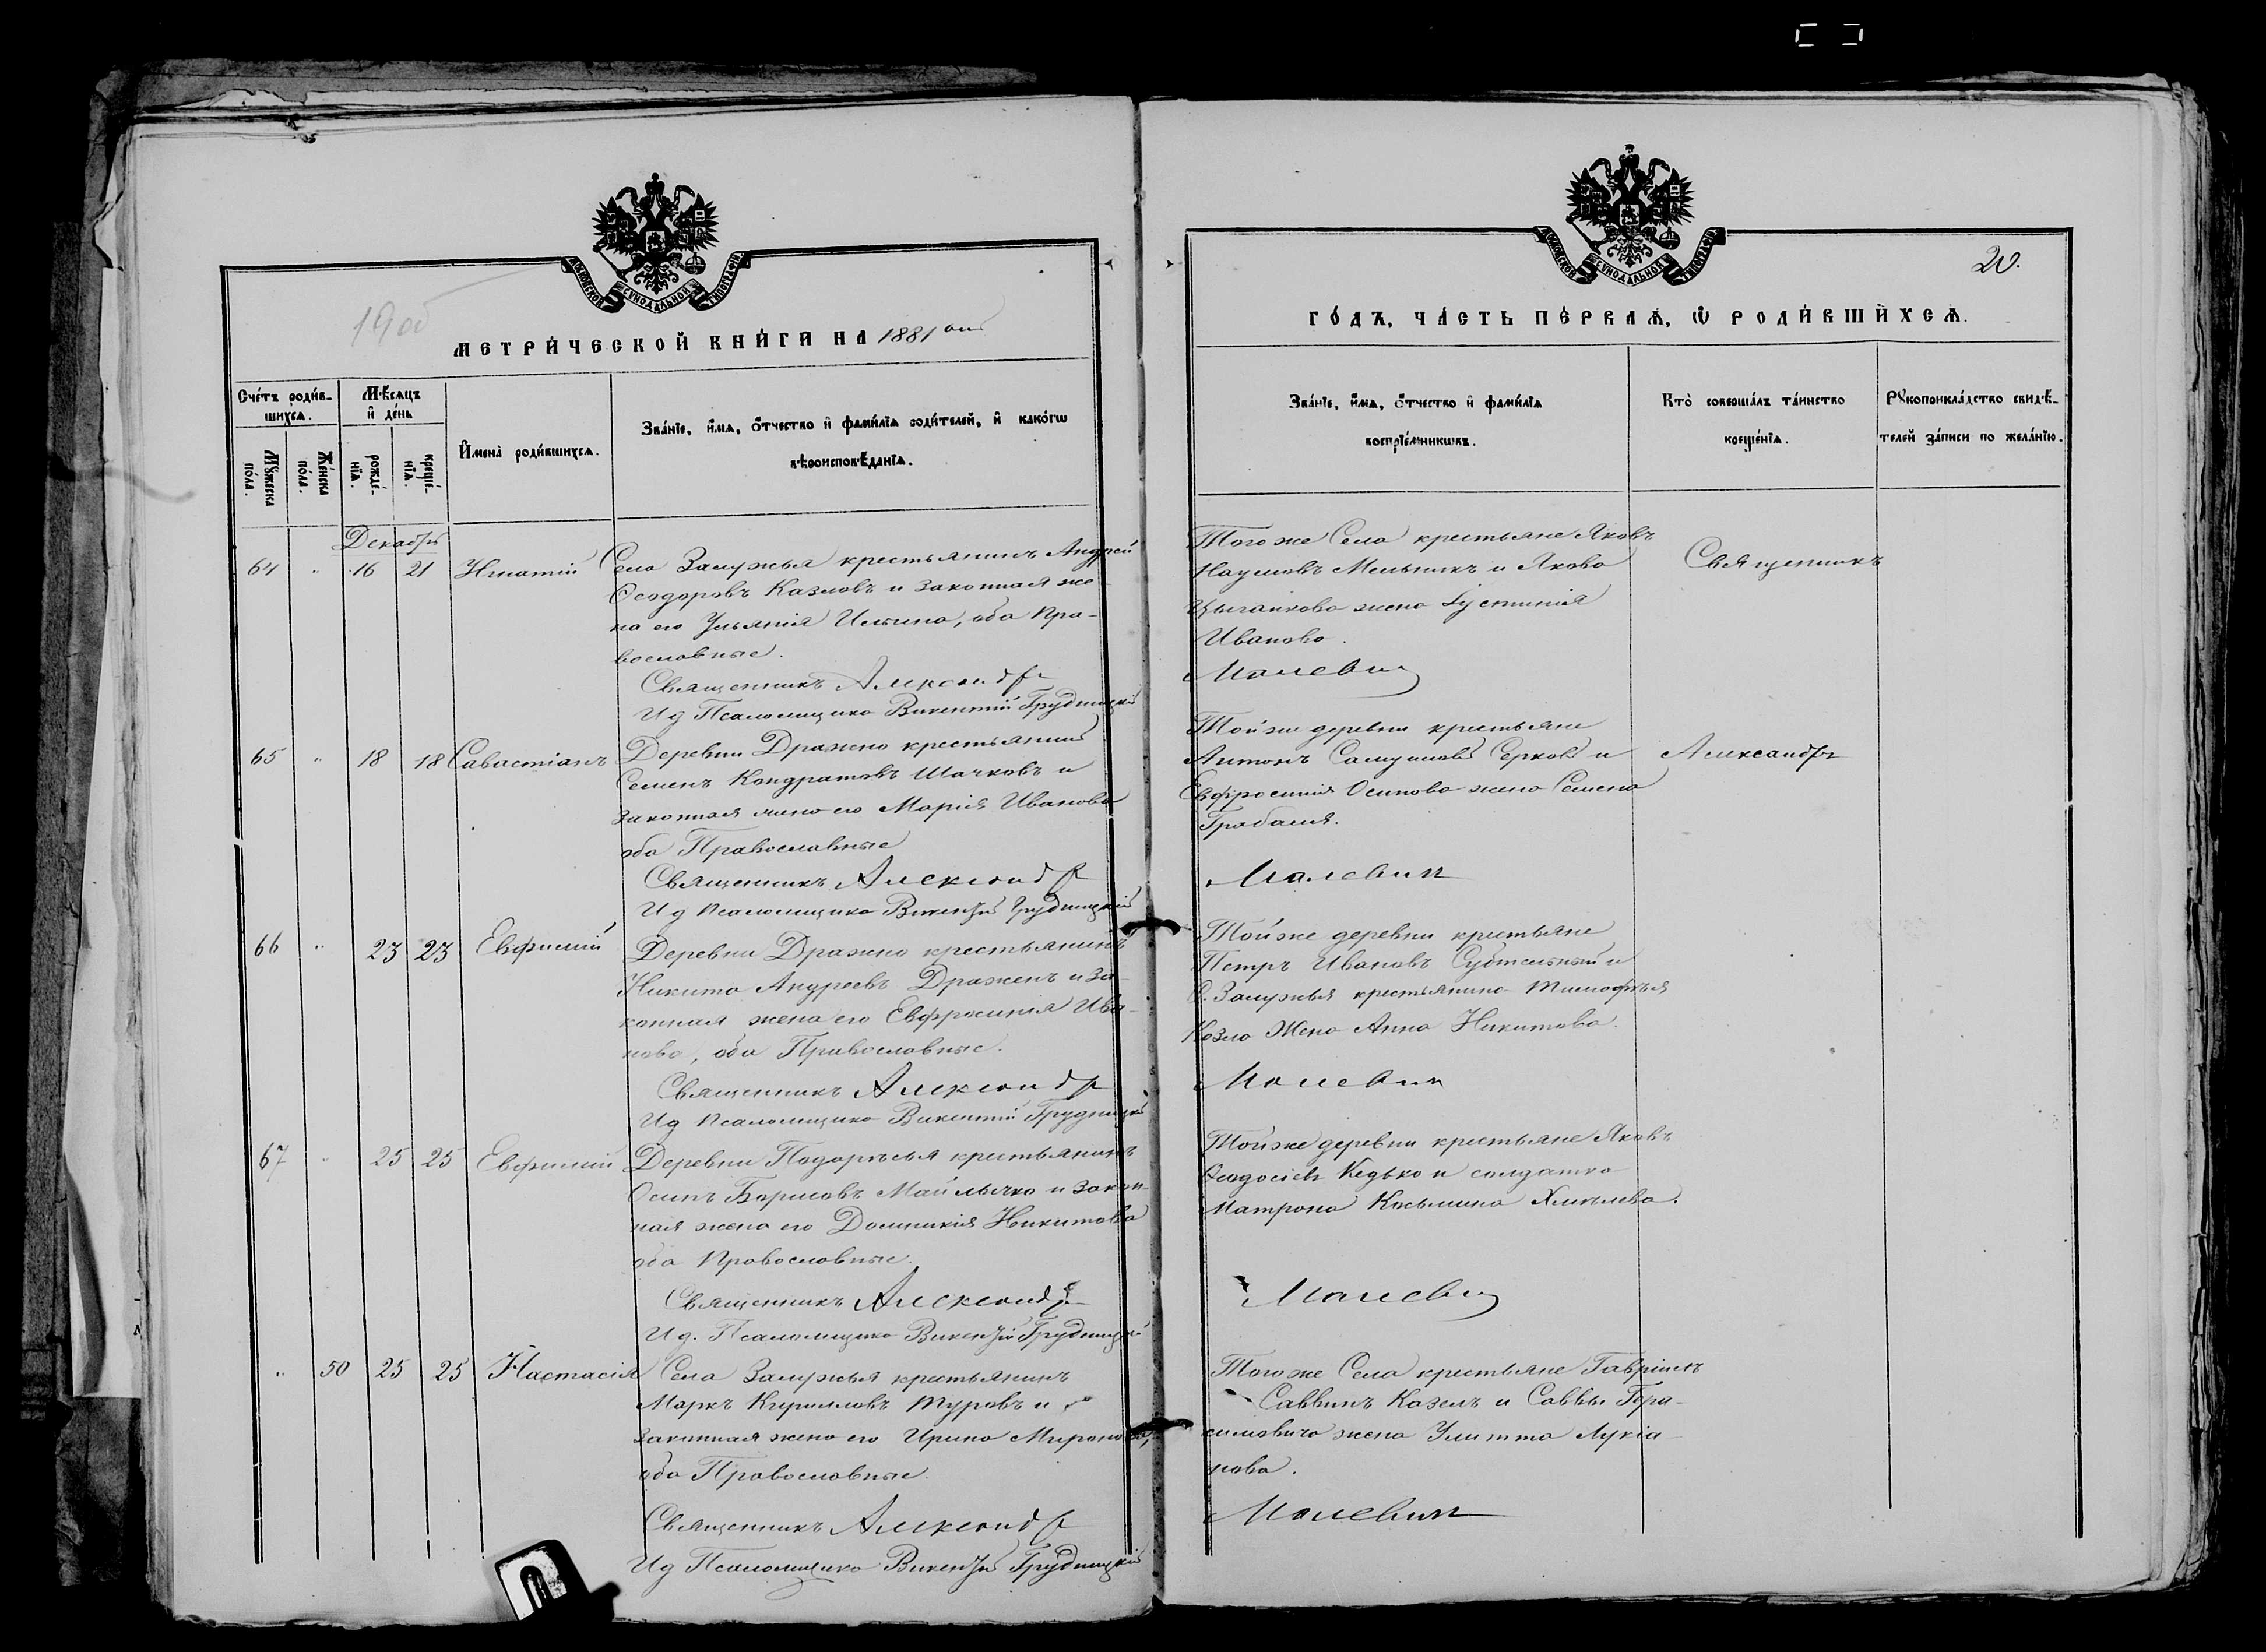 МОСКОВСКОЙ СѴНОДАЛЬНОЙ ТИПОГРАФІИ
МЕТРИ́ЧЕСКОЙ КНИ́ГИ НА 1881 ый
Сче́тъ роди́в-
шихсѧ.
Мѣ́сѧцъ
и҆ де́нь
Мꙋ́жеска
по́ла.
Же́нска
по́ла.
рожде́-
нїѧ.
креще́-
нїѧ.
И҆мена̀ роди́вшихсѧ.
Зва́нїе, и҆́мѧ, ѻ҆́тчество и҆ фами́лїѧ роди́телей, и҆ како́гѡ
вѣроисповѣ́данїѧ.
Декабрь
64 " 16 21 Игнатій Села Залужья крестьянинъ Андрей
Ѳеодоровъ Казловъ и законная же-
на его Ульянія Ильина, оба Пра-
вославные.
Священникъ Александръ
И д Псаломщика Викентій Грудницкій
65 " 18 18 Савастіанъ Деревни Дражно крестьянинъ
Семенъ Кондратовъ Шачковъ и
законная жена его Марія Иванова
оба Православные
Священникъ Александръ
И д псаломщика Викентій Грудницкій
66 " 23 23 Евфимій Деревни Дражно крестьянинъ
Никита Андреевъ Драженъ и за-
конная жена его Евфросинія Ива-
нова, оба Православные.
Священникъ Александръ
И д псаломщика Викентій Грудницкій
67 " 25 25 Евфимій Деревни Подоресья крестьянинъ
Осипъ Борисовъ и закон-
ная жена его Домникія Никитова
оба Православные.
Священникъ Александръ
И д. Псаломщика Викентій Грудницкій
" 50 25 25 Настасія Села Залужья крестьянинъ
Маркъ Кирилловъ Туровъ и
законная жена его Ирина Миронова,
оба Православные.
Священникъ Александръ
И д Псаломщика Викентій Грудницкій
МОСКОВСКОЙ СѴНОДАЛЬНОЙ ТИПОГРАФІИ
20.
ГО́ДЪ, ЧА́СТЬ ПЕ́РВАѦ, Ѡ҆ РОДИ́ВШИХСѦ.
Зва́нїе, и҆́мѧ, ѻ҆́тчество и҆ фами́лїѧ
воспрїе́мникѡвъ.
Кто̀ соверша́лъ та́инство
креще́нїѧ.
Рꙋкоприкла́дство свидѣ́-
телей за́писи по жела́нїю.
Того же Села крестьяне Яковъ
Наумовъ Мельникъ и Якова
Цыганкова жена Іустинія
Иванова.
Священникъ
Малевич
Той же деревни крестьяне
Антонъ Самуиловъ Серковъ и
Евфросинія Осипова жена Семена
Александръ
Малевич
Той же деревни крестьяне
Петръ Ивановъ Субтельный и
С. Залужья крестьянина Тимофѣя
Козла Жена Анна Никитова.
Малевич
Той же деревни крестьяне Яковъ
Ѳеодосіевъ Кедько и солдатка
Матрона Косьмина Хмѣлева.
Малевич
Того же Села крестьяне Гавріилъ
Саввинъ Казелъ и Саввы Гера-
симовича жена Улитта Лукіа-
нова.
Малевич